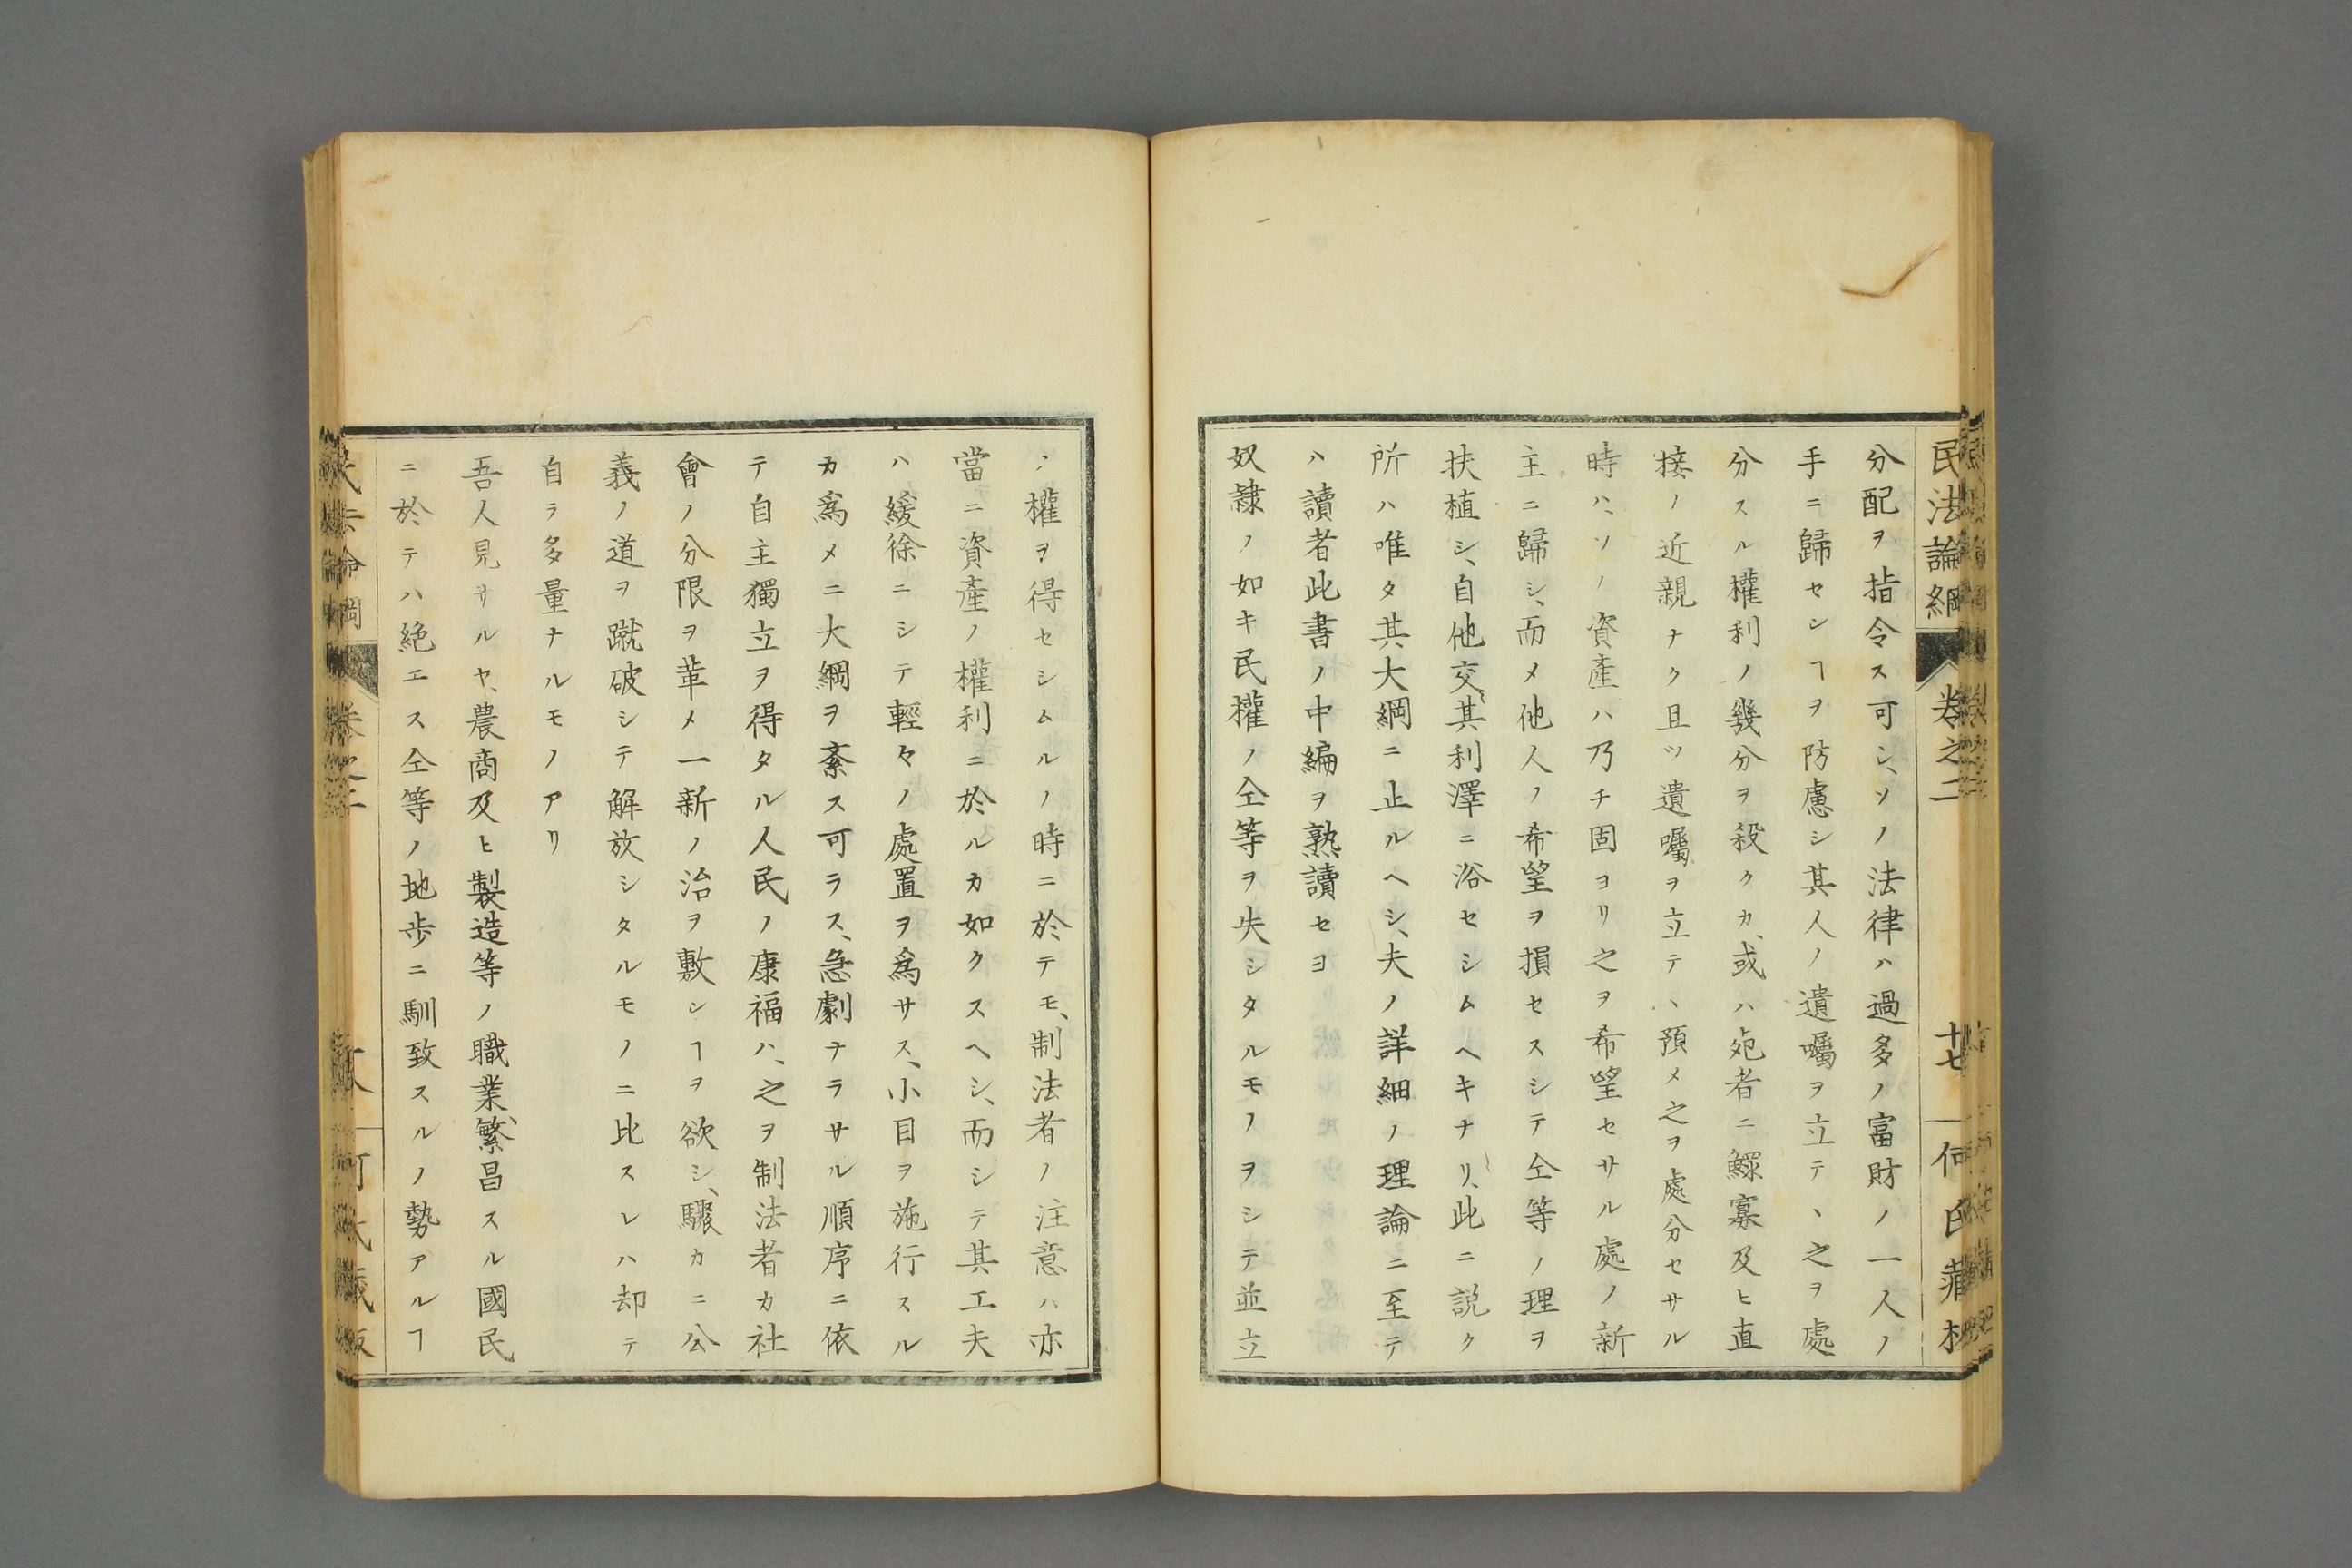 民法論綱 卷之二 十七 何氏藏板
分配ヲ指令ス可シ、ソノ法律ハ過多ノ富財ノ一人ノ
手ニ歸セシヿヲ防慮シ其人ノ遺囑ヲ立テヽ之ヲ處
分スル權利ノ幾分ヲ殺クカ、或ハ死者ニ鰥寡及ヒ直
接ノ近親ナク且ツ遺囑ヲ立テヽ預メ之ヲ處分セサル
時ハ、ソノ資產ハ乃チ固ヨリ之ヲ希望セサル處ノ新
主ニ歸シ、而メ他人ノ希望ヲ損セスシテ仝等ノ理ヲ
扶植シ、自他交其利澤ニ浴セシムヘキナリ、此ニ説ク
所ハ唯タ其大綱ニ止ルヘシ、夫ノ詳細ノ理論ニ至テ
ハ讀者此書ノ中編ヲ熟讀セヨ
奴隷ノ如キ民權ノ仝等ヲ失シタルモノヲシテ並立
ノ權ヲ得セシムルノ時ニ於テモ、制法者ノ注意ハ亦
當ニ資產ノ權利ニ於ルカ如クスヘシ、而シテ其工夫
ハ緩徐ニシテ輕々ノ處置ヲ爲サス、小目ヲ施行スル
カ爲メニ大綱ヲ紊ス可ラス、急劇ナラサル順序ニ依
テ自主獨立ヲ得タル人民ノ康福ハ、之ヲ制法者カ社
會ノ分限ヲ革メ一新ノ治ヲ敷シヿヲ欲シ、驟カニ公
義ノ道ヲ蹴破シテ解放シタルモノニ比スレハ却テ
自ラ多量ナルモノアリ
吾人見サルヤ、農商及ヒ製造等ノ職業繁昌スル國民
ニ於テハ絶エス仝等ノ地歩ニ馴致スルノ勢アルヿ